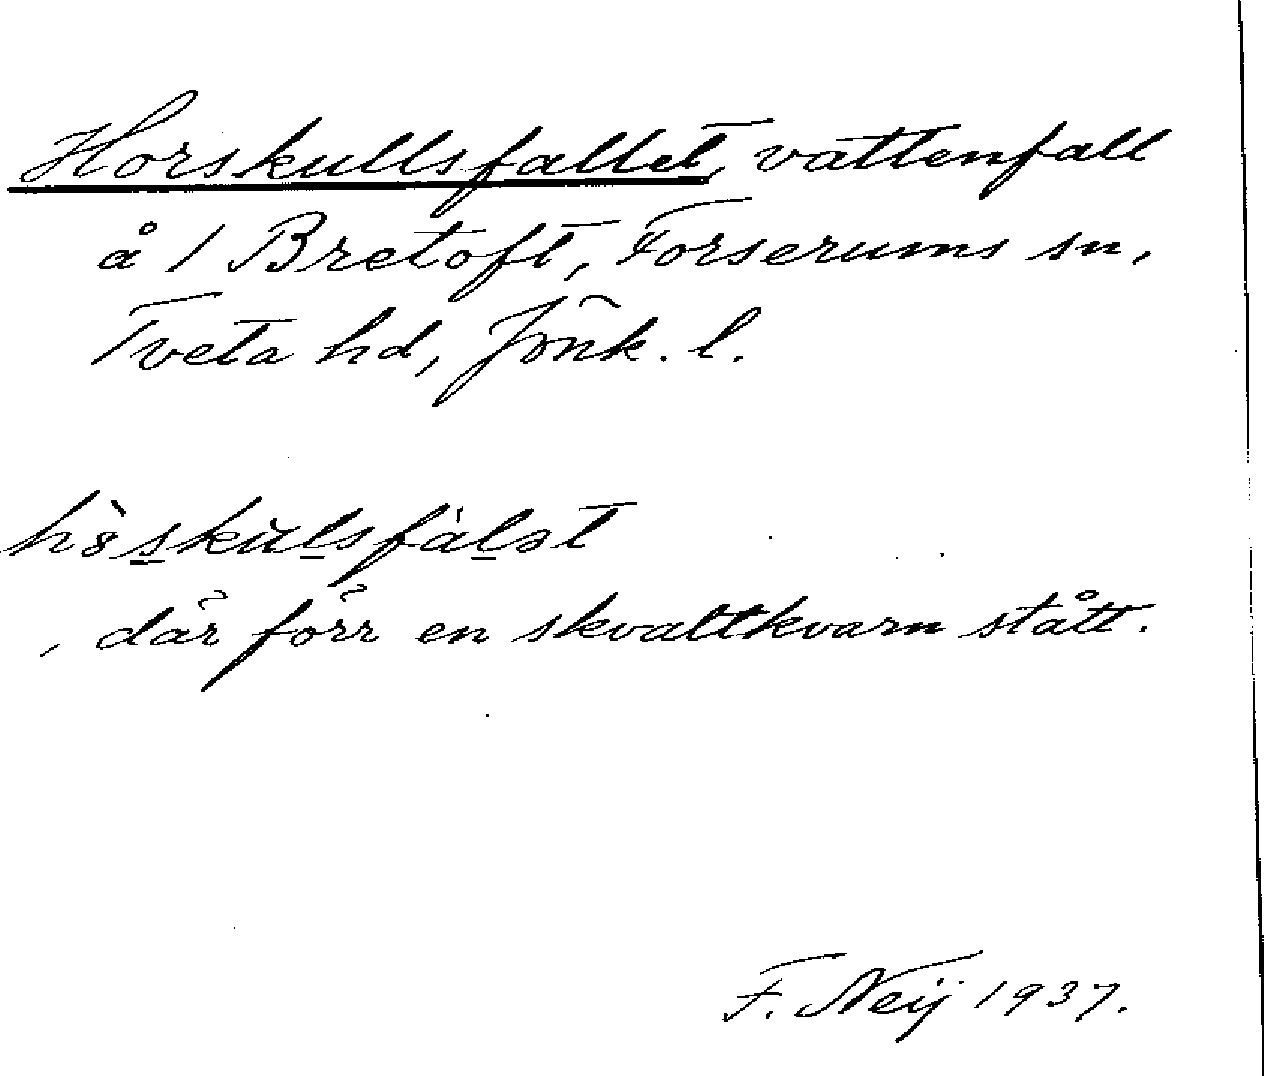 Horskullsfallet, vattenfall
å 1 Bretoft, Forserums sn,
Tveta hd, Jönk. l.
, där förr en skvaltkvarn stått.
F. Neij 1937.